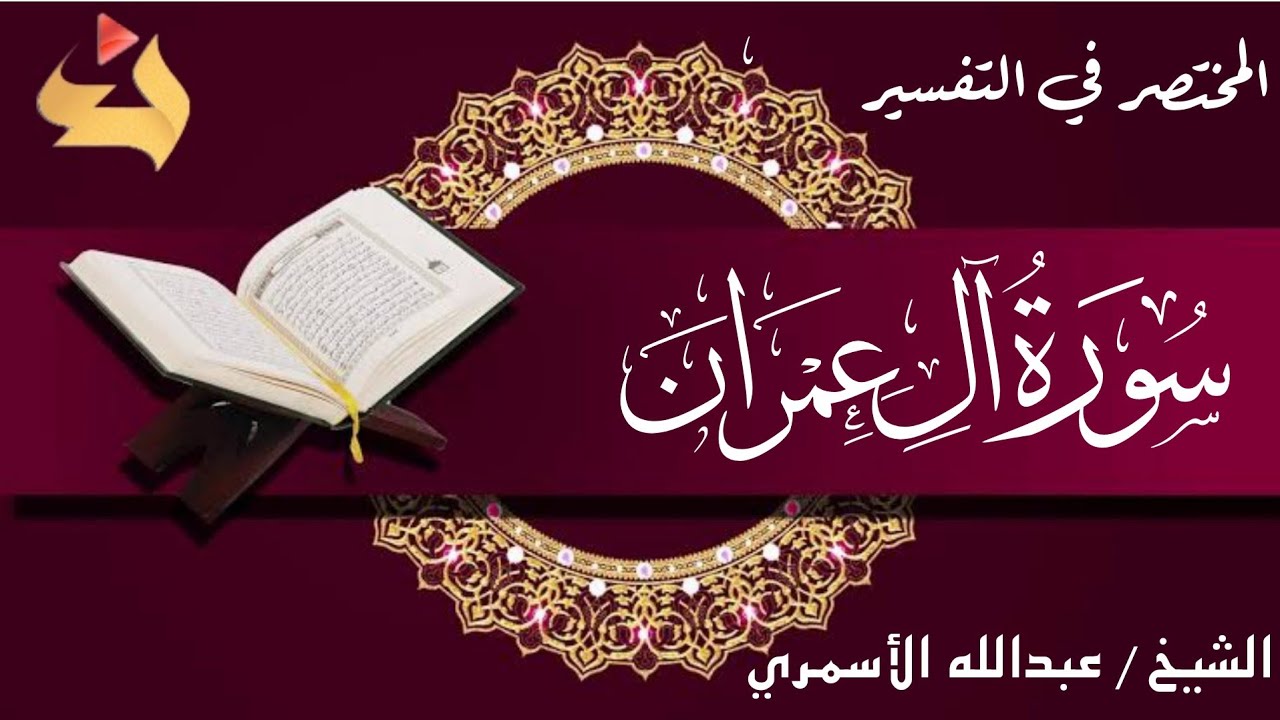 المختصر في التفسير
سُورَةُ آلِ عِمْرَانَ
الشيخ / عبدالله الأسمري